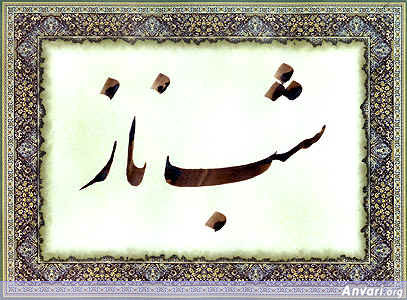 شب ناز
Anvari.org